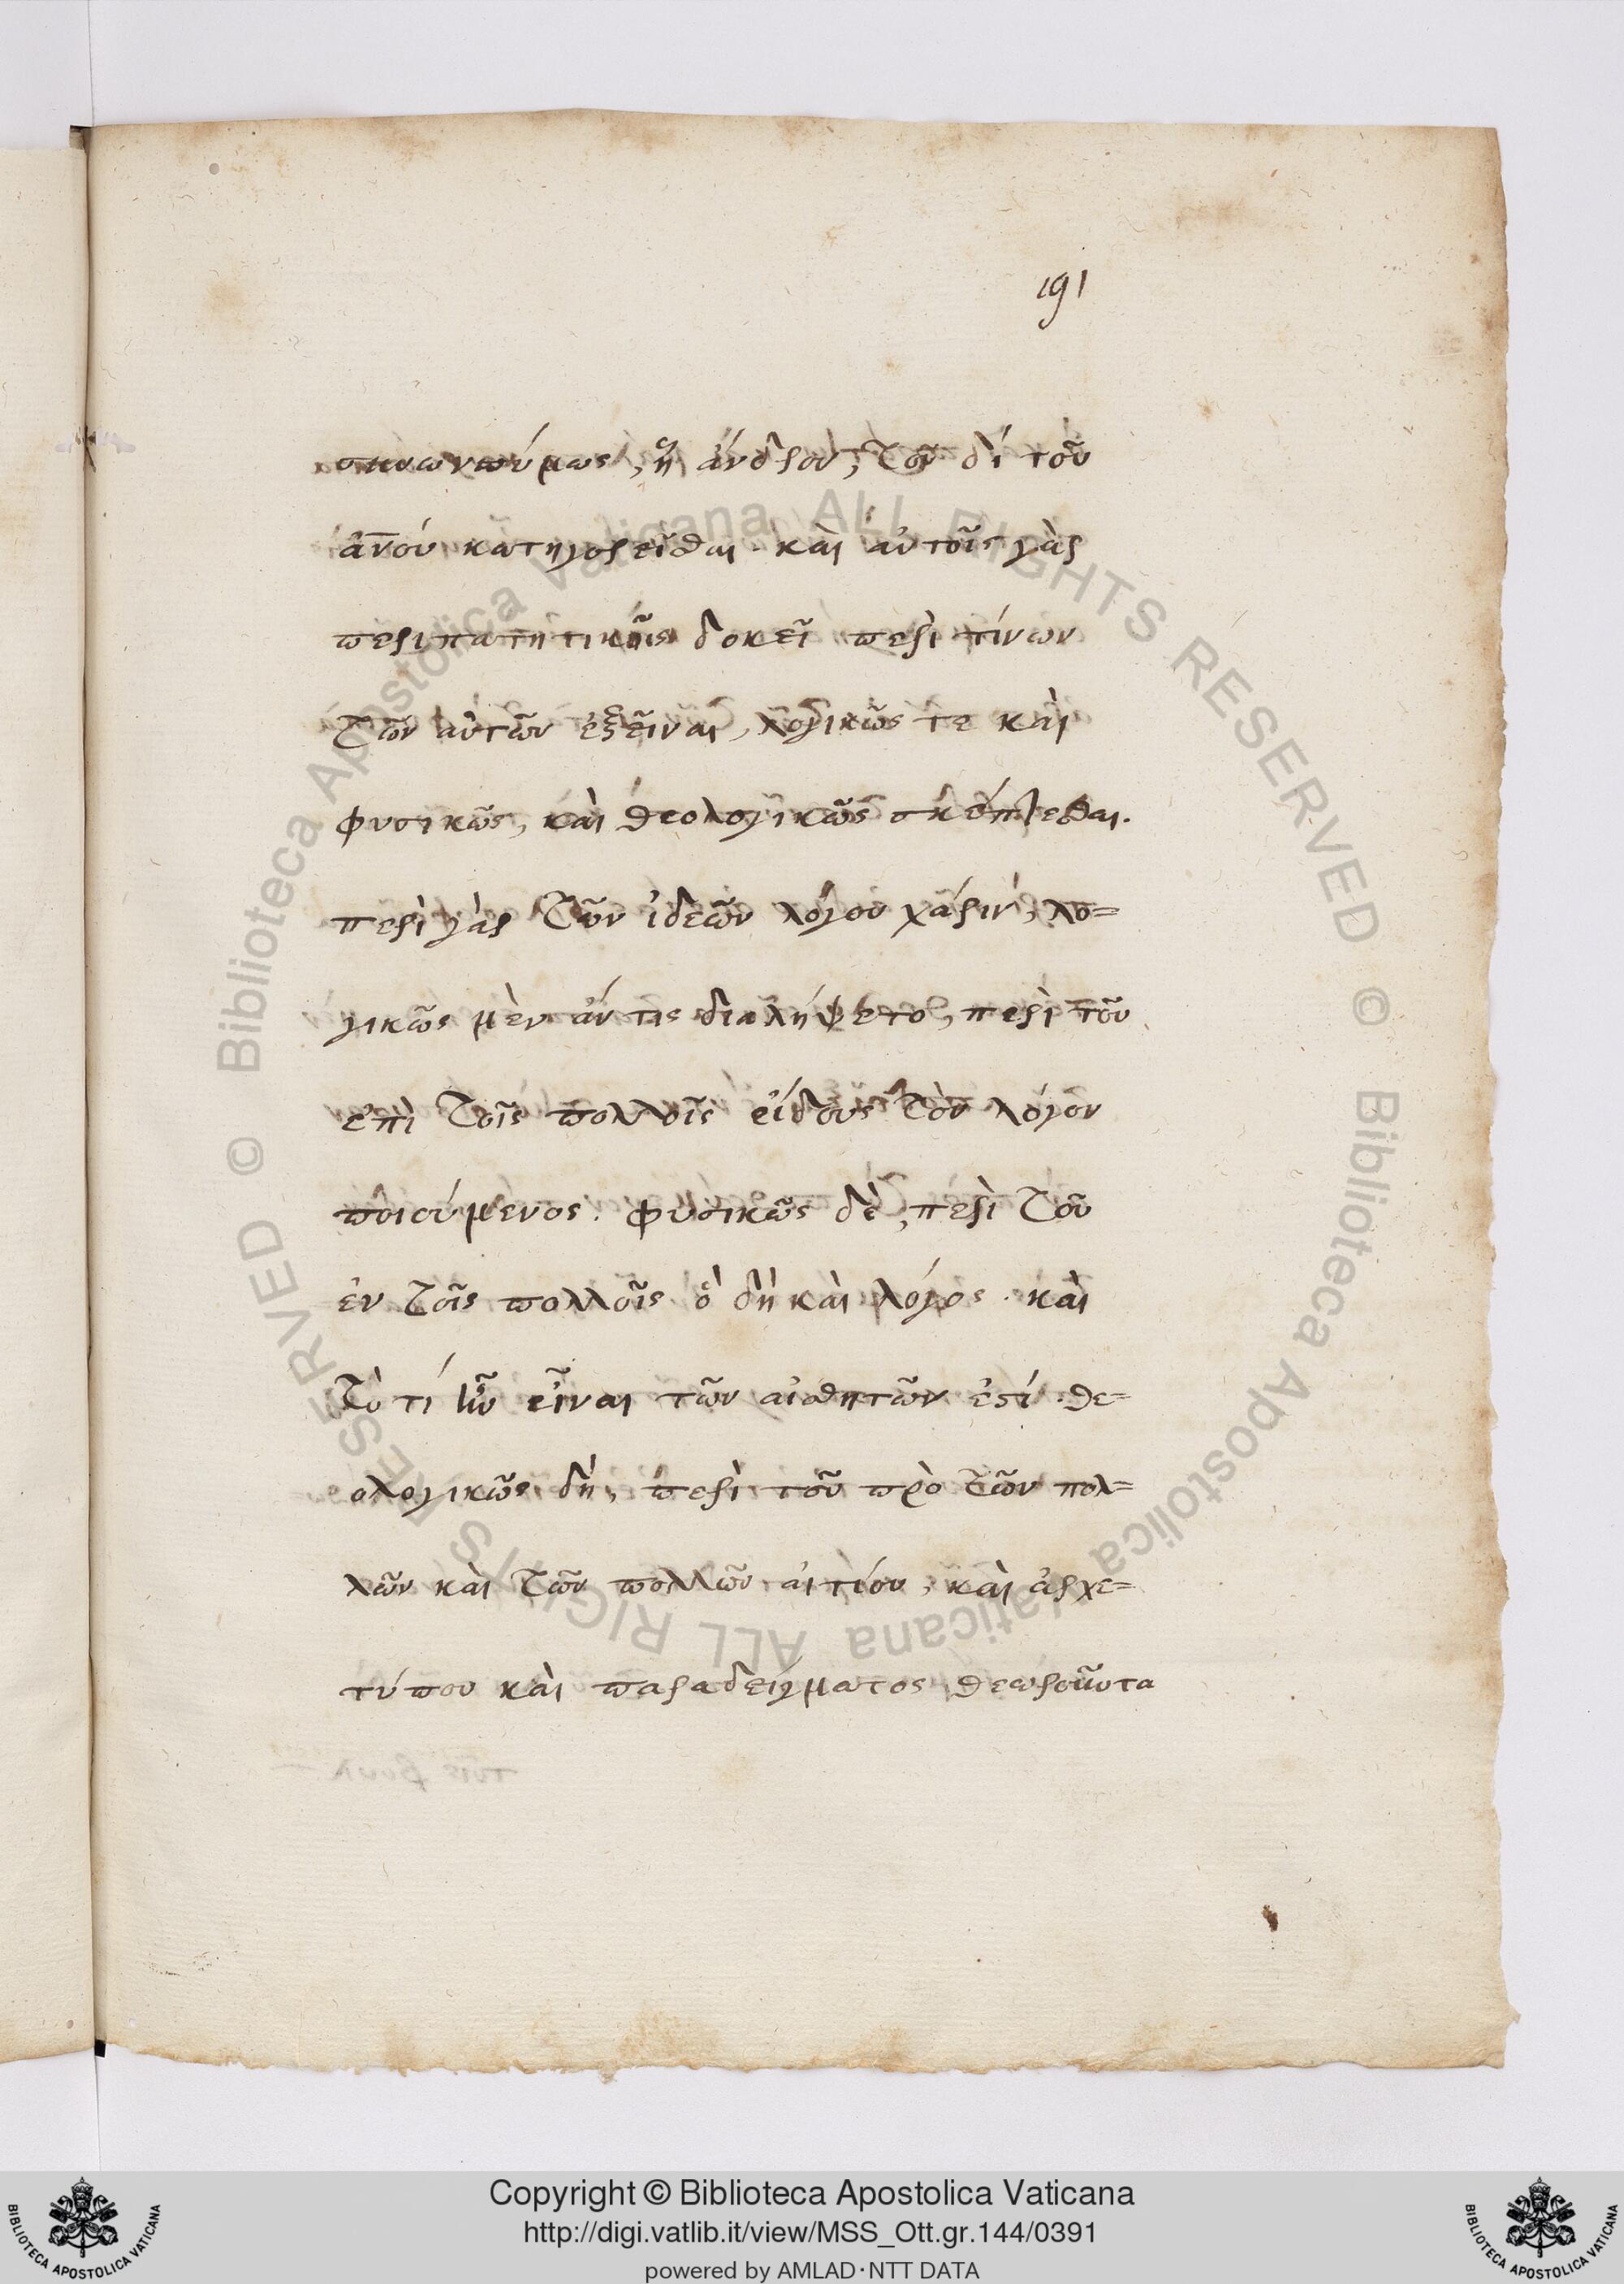 191
συνωνύμως, ἢ ἀνδρου, τοῦ δί τοῦ
ἀν̅ου κατηγορεῖσθαι· καὶ αὐτοῖς γὰρ
περιπατητικοῖς δοκεῖ περὶ τίνων
τῶν αὐτῶν ἐξεῖναι, λογικῶς τε καὶ
φυσικῶς, καὶ θεολογικῶς σκέπτεσθαι.
περὶ γὰρ τῶν ἰδεῶν λόγου χάριν, λο=
γικῶς μὲν ἄν τις διαλήψετο, περὶ τοῦ
ἐπὶ τοῖς πολλοῖς εἴδους τὸν λόγον
ποιούμενος. φυσικῶς δὲ, περὶ τοῦ
ἐν τοῖς πολλοῖς ὃ δὴ καὶ λόγος· καὶ
τὸ τί ἦν εἶναι τῶν αἰσθητῶν ἐστί· θε=
ολογικῶς δὴ, περὶ τοῦ πρὸ τῶν πολ=
λῶν καὶ τῶν πολλῶν αἰτίου, καὶ ἀρχε=
τύπου καὶ παραδείγματος θεωροῦντα
Copyright © Biblioteca Apostolica Vaticana
http://digi.vatlib.it/view/MSS_Ott.gr.144/0391
powered by AMLAD·NTT DATA
BIBLIOTECA APOSTOLICA VATICANA
BIBLIOTECA APOSTOLICA VATICANA
© Biblioteca Apostolica Vaticana ALL RIGHTS RESERVED
© Biblioteca Apostolica Vaticana ALL RIGHTS RESERVED